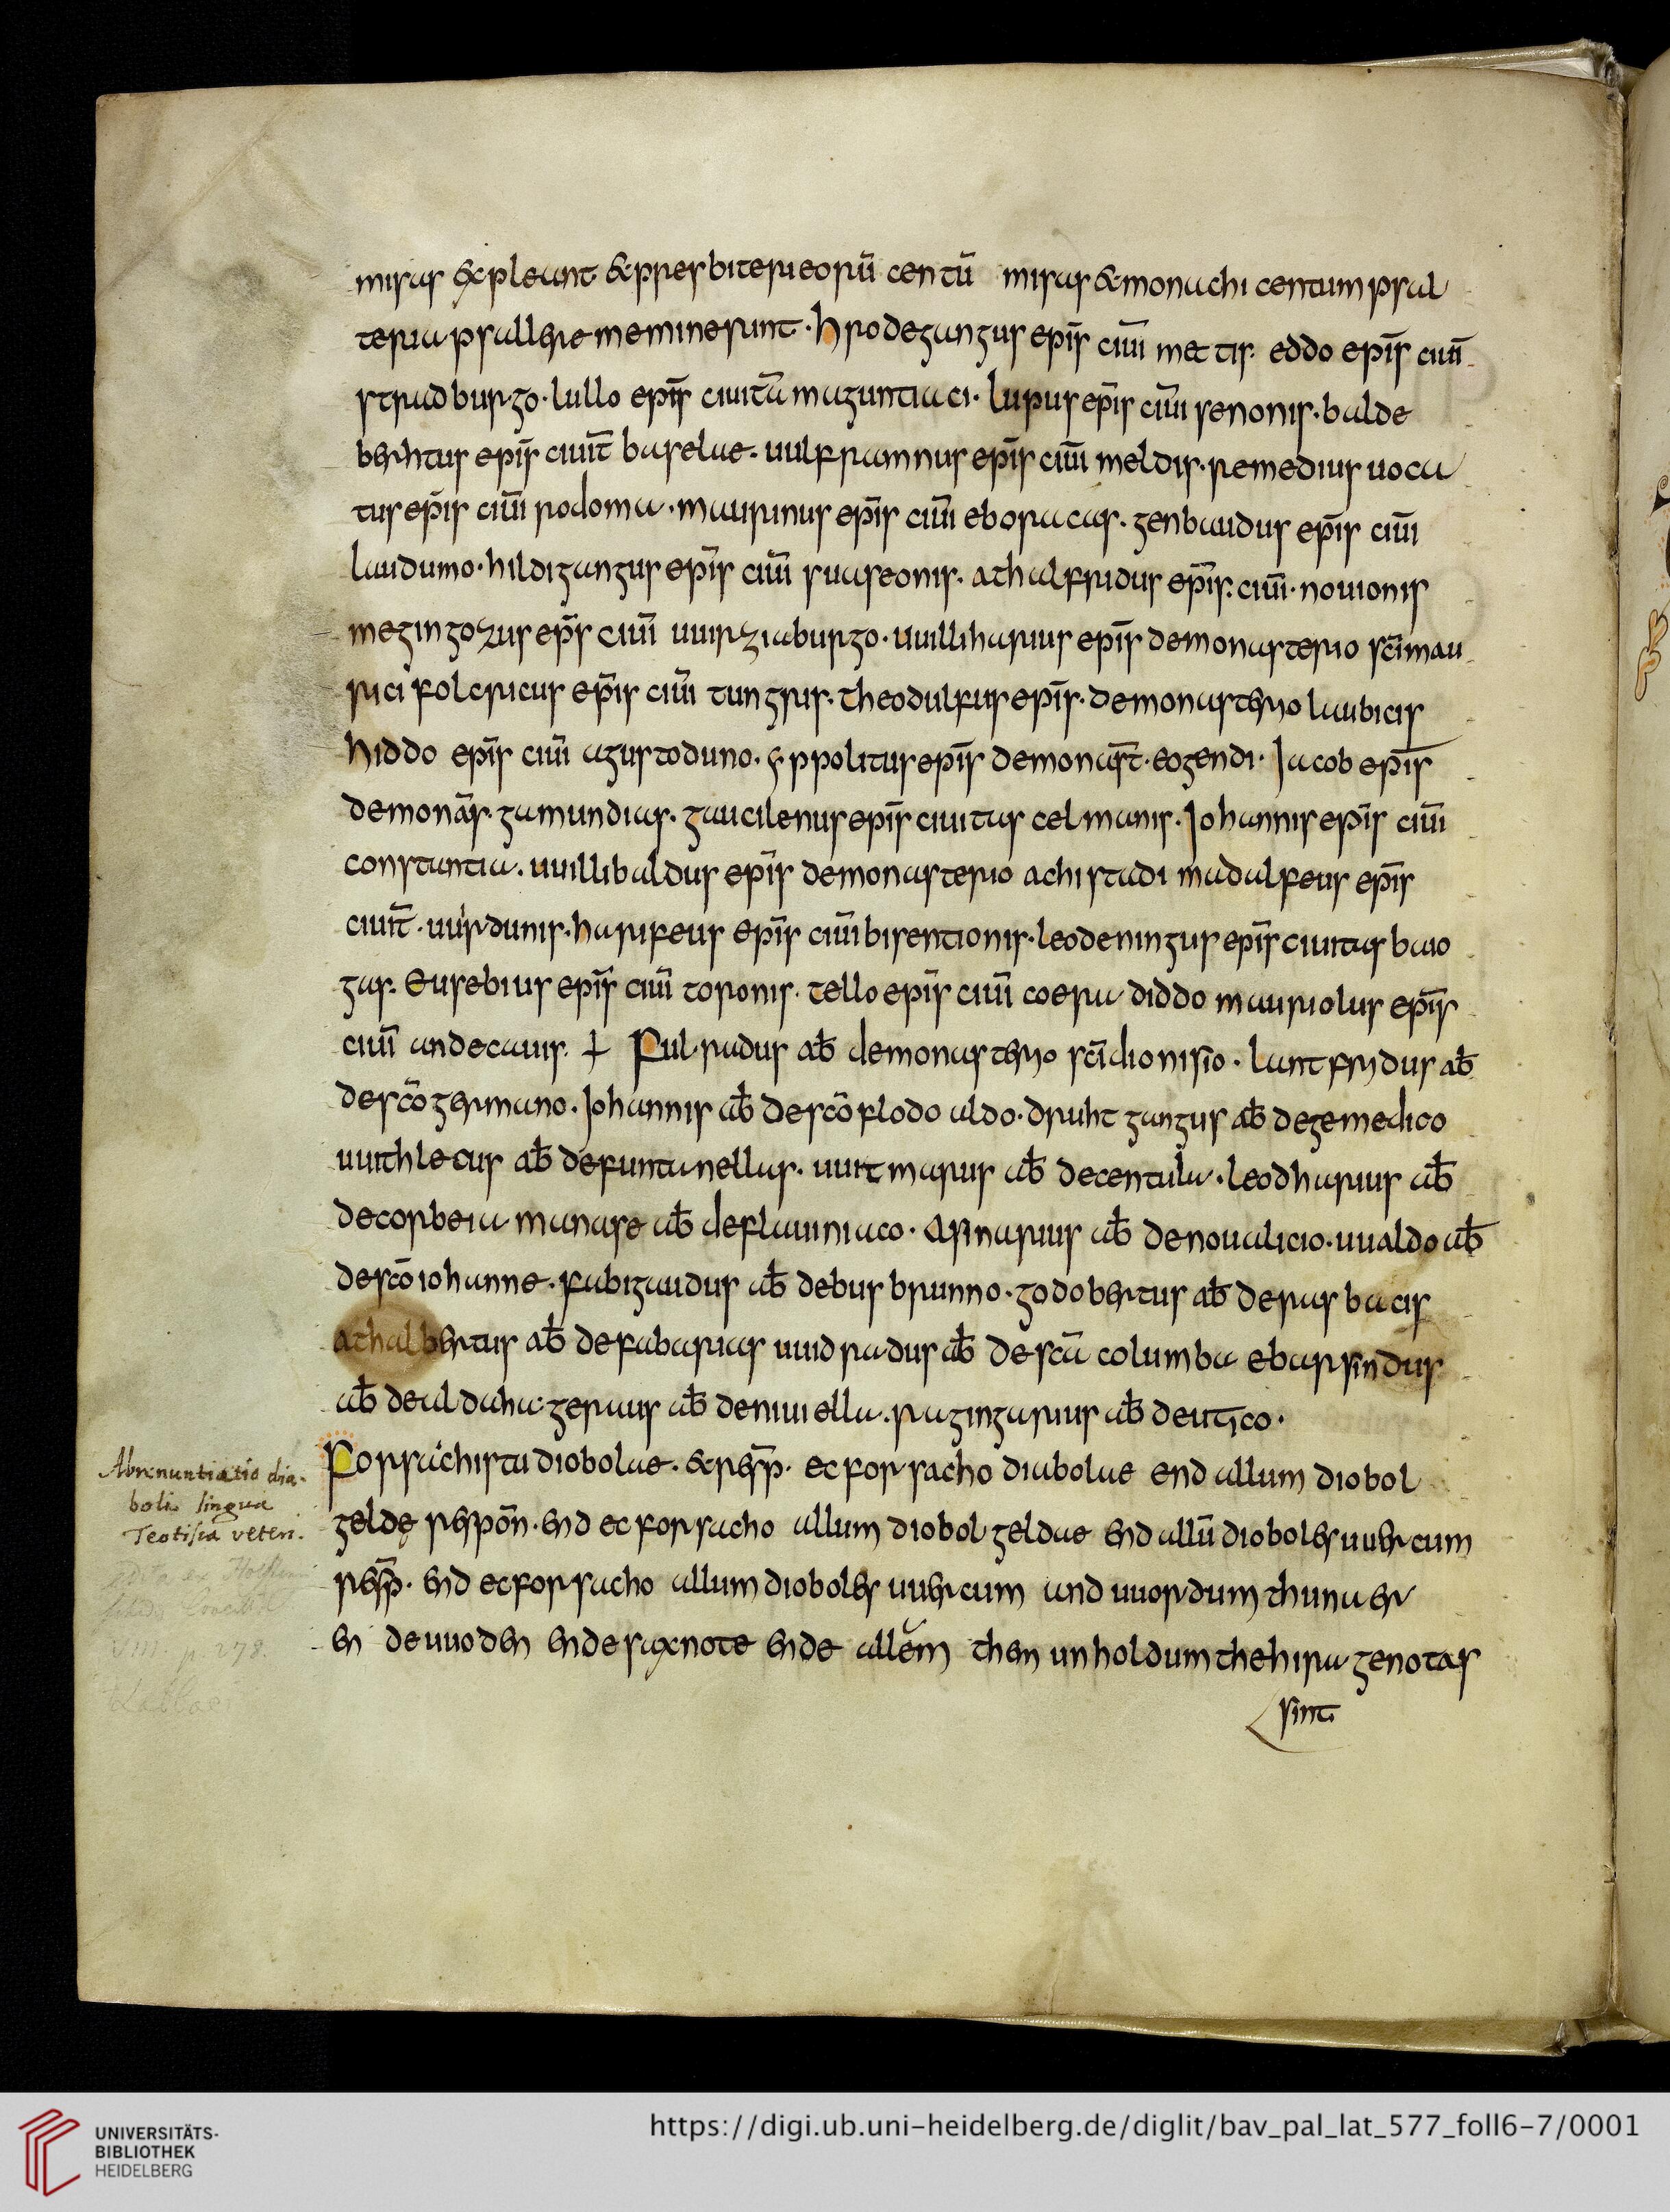 misas & expleant & presbiteri eorū centū misas & monachi centum psal
teria psallere meminerint · hrodegangus epīs ciui mettis · eddo epīs ciui
stradburgo · lullo epīs ciuitā maguntiaci · lupus epīs ciui senonis · balde
berhtus epīs ciuit baselae · uulframnus epīs ciui meldis · remedius uoca
tus epīs ciui rodoma · maurinus epīs ciui eboracas · genbaudus epīs ciui
laudumo · hildigangus epīs ciui suaseonis · athalfridus epīs · ciui · nouionis
megingozus epīs ciui uuirziaburgo · uuilliharius epīs demonasterio scīmau
rici folcricus epīs ciui tungris · theodulfus epīs · demonasterio laubicis
hiddo epīs ciui agustoduno · yppolitus epīs demonast · eogendi · Jacob epīs
demonās · gamundias · gaucilenus epīs ciuitas celmanis · Johannis epīs ciui
constantia · uuillibaldus epīs demonasterio achistadi madalfeus epīs
ciuit · uirdunis · harifeus epīs ciui bisentionis · leodeningus epīs ciuitas baio
gas · Eusebius epīs ciui toronis · tello epīs ciui coera diddo mauriolus epīs
ciui andecauis · † Fulradus ab demonasterio scīdionisio · lantfridus ab
descō germano · Johannis ab descō flodoaldo · druhtgangus ab degemedico
uuithlecus ab defuntanellas · uuitmarus ab decentula · leodharius ab
decorbeia manase ab deflauiniaco · Asinarius ab denoualicio · uualdo ab
descō iohanne · fabigaudus ab debusbrunno · godobertus ab derasbacis
athalbertus ab defabarias uuidradus ab descā columba ebarsindus
ab dealdaha · geraus ab deniuiella · ragingarius ab deutico ·
Forsachistu diobolae · & resp̄ · ec forsacho diabolae end allum diobol
geldę respōn · end ec forsacho allum diobolgeldae end allū dioboles uuercum
resp̄ · end ec forsacho allum dioboles uuercum and uuordum thunaer
en de uuoden ende saxnote ende allēm them unholdum the hira genotas
sint
Abrenuntiatio dia-
boli lingua
Teotisca veteri.
VIII. p. 278.
Labbae
UNIVERSITÄTS-
BIBLIOTHEK
HEIDELBERG
https://digi.ub.uni-heidelberg.de/diglit/bav_pal_lat_577_foll6-7/0001